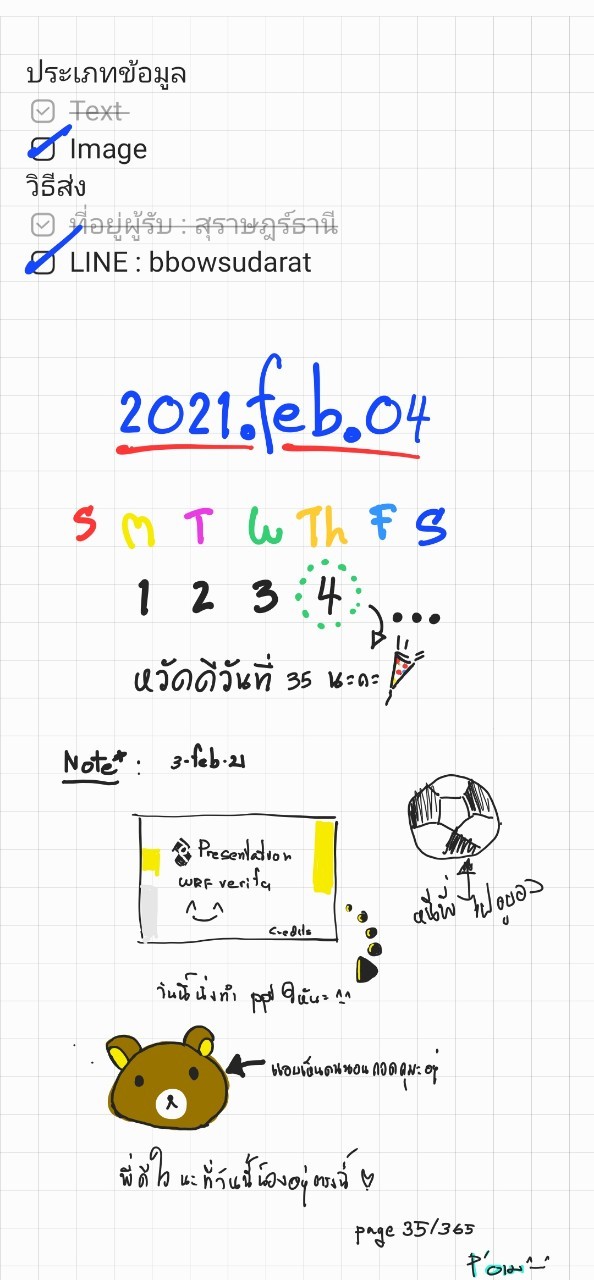 ประเภทข้อมูล
Text
Image
วิธีส่ง
ที่อยู่ผู้รับ : สุราษฎร์ธานี
LINE : bbowsudarat
2021.feb.04
S M T W Th F S
1 2 3 4 ...
หวัดดีวันที่ 35 นะคะ
Note* : 3-feb-21
Presentation
WRF verify
Credits
วันนี้นั่งทำ ppt
แอบเห็นคนนอนกอดคุมะอยู่
พี่ดีใจ นะที่วันนี้น้องอยู่ตรงนี้ ♡
page 35/365